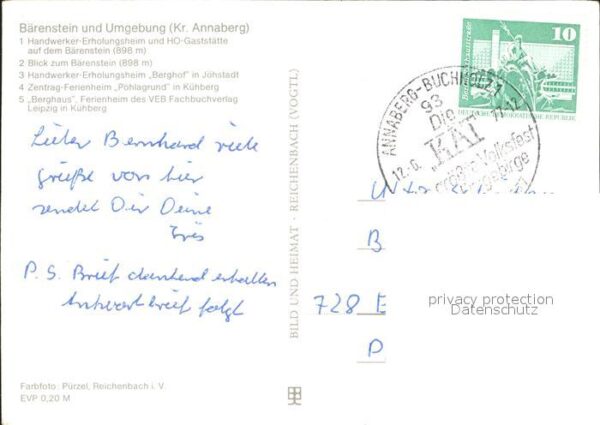 Bärenstein und Umgebung (Kr. Annaberg)
1 Handwerker-Erholungsheim und HO-Gaststätte
auf dem Bärenstein (898 m)
2 Blick zum Bärenstein (898 m)
3 Handwerker-Erholungsheim „Berghof" in Jöhstadt
4 Zentrag-Ferienheim „Pöhlagrund" in Kühberg
5 „Berghaus", Ferienheim des VEB Fachbuchverlag
Leipzig in Kühberg
Lieber Bernhard viele
grüße von hier
sendet Dir Deine
P.S. Brief dankend erhalten
Antwortbrief folgt
Farbfoto: Pürzel, Reichenbach i. V.
EVP 0,20 M
BILD UND HEIMAT · REICHENBACH (VOGTL)
10
DEUTSCHE DEMOKRATISCHE REPUBLIK
ANNABERG-BUCHHOLZ 1
93
Die
KÄT
Volksfest
728 E
B
P
privacy protection
Datenschutz